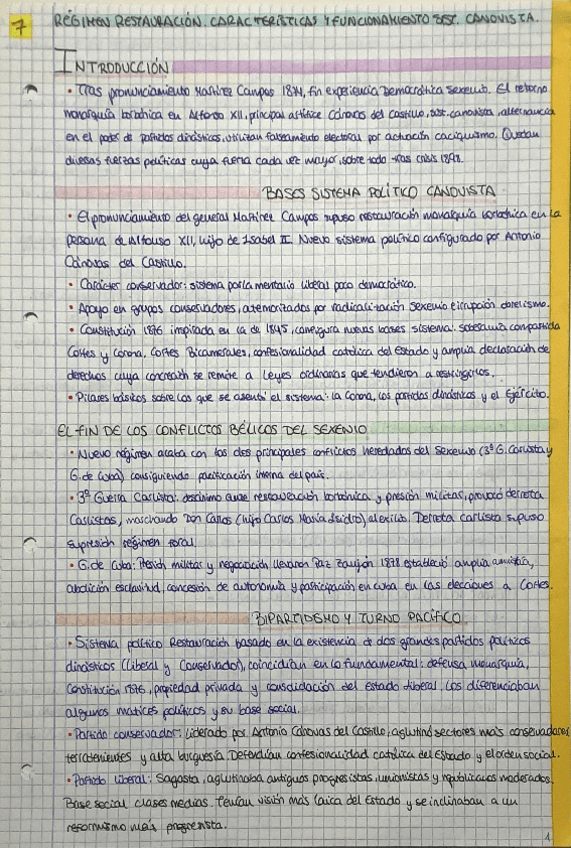 7
RÉGIMEN RESTAURACIÓN. CARACTERÍSTICAS Y FUNCIONAMIENTO SIST. CANOVISTA.
INTRODUCCIÓN
• Tras pronunciamiento Martínez Campos 1874, fin experiencia Democrática Sexenio. El retorno
monarquía borbónica en Alfonso XII, principal artífice Cánovas del Castillo, sist. canovista, alternancia
en el poder de partidos dinásticos, utilizan falseamiento electoral por actuación caciquismo. Quedan
diversas fuerzas políticas cuya fuerza cada vez mayor, sobre todo tras crisis 1898.
BASES SISTEMA POLÍTICO CANOVISTA
• El pronunciamiento del general Martínez Campos supuso restauración monarquía borbónica en la
persona de Alfonso XII, hijo de Isabel II. Nuevo sistema político configurado por Antonio
Cánovas del Castillo.
• Carácter conservador: sistema parlamentario liberal poco democrático.
• Apoyo en grupos conservadores, atemorizados por radicalización Sexenio e irrupción obrerismo.
• Constitución 1876 inspirada en la de 1845, consagra nuevas bases sistema: soberanía compartida
Cortes y Corona, Cortes Bicamerales, confesionalidad católica del Estado y amplia declaración de
derechos cuya concreción se remite a leyes ordinarias que tendieron a restringirlos.
• Pilares básicos sobre los que se asentó el sistema: la Corona, los partidos dinásticos y el Ejército.
EL FIN DE LOS CONFLICTOS BÉLICOS DEL SEXENIO
• Nuevo régimen acaba con los dos principales conflictos heredados del Sexenio (3ª G. Carlista y
G. de Cuba) consiguiendo pacificación interna del país.
• 3ª Guerra Carlista: desánimo ante restauración borbónica y presión militar, provocó derrota
Carlistas, marchando Don Carlos (hijo Carlos María Isidro) al exilio. Derrota carlista supuso
supresión régimen foral.
• G. de Cuba: Presión militar y negociación llevaron Paz Zanjón 1878 estableció amplia amnistía,
abolición esclavitud, concesión de autonomía y participación en Cuba en las elecciones a Cortes.
BIPARTIDISMO Y TURNO PACÍFICO
• Sistema político Restauración basado en la existencia de dos grandes partidos políticos
dinásticos (Liberal y Conservador), coincidían en lo fundamental: defensa monarquía,
Constitución 1876, propiedad privada y consolidación del Estado liberal. Los diferenciaban
algunos matices políticos y su base social.
• Partido conservador: liderado por Antonio Cánovas del Castillo, aglutinó sectores más conservadores,
terratenientes y alta burguesía. Defendían confesionalidad católica del Estado y el orden social.
• Partido Liberal: Sagasta, aglutinaba antiguos progresistas, unionistas y republicanos moderados.
Base social clases medias. Tenían visión más laica del Estado y se inclinaban a un
reformismo más progresista.
1